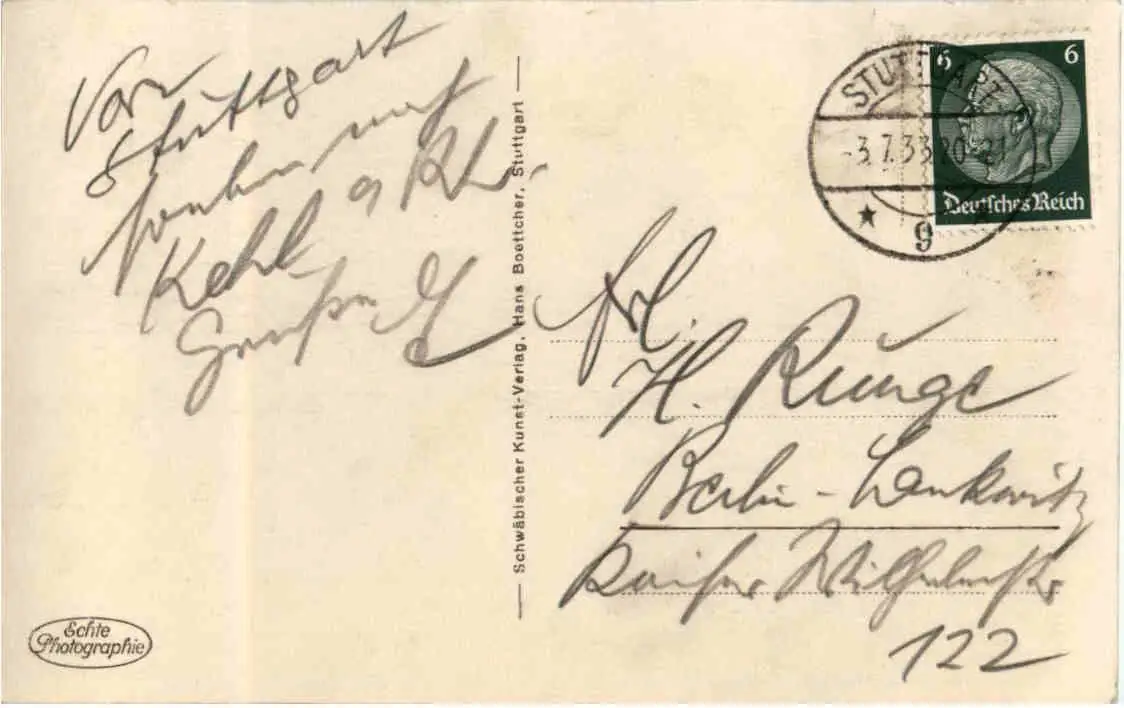 Von
Stuttgart
fahren nach
Kehl a Rh.
Grüße
Schwäbischer Kunst-Verlag, Hans Boettcher, Stuttgart
Echte
Photographie
6 6
Deutsches Reich
STUTTGART
-3.7.33.20-21
9
Frl.
H. Runge
Berlin-Lankwitz
Kaiser Wilhelmstr
122